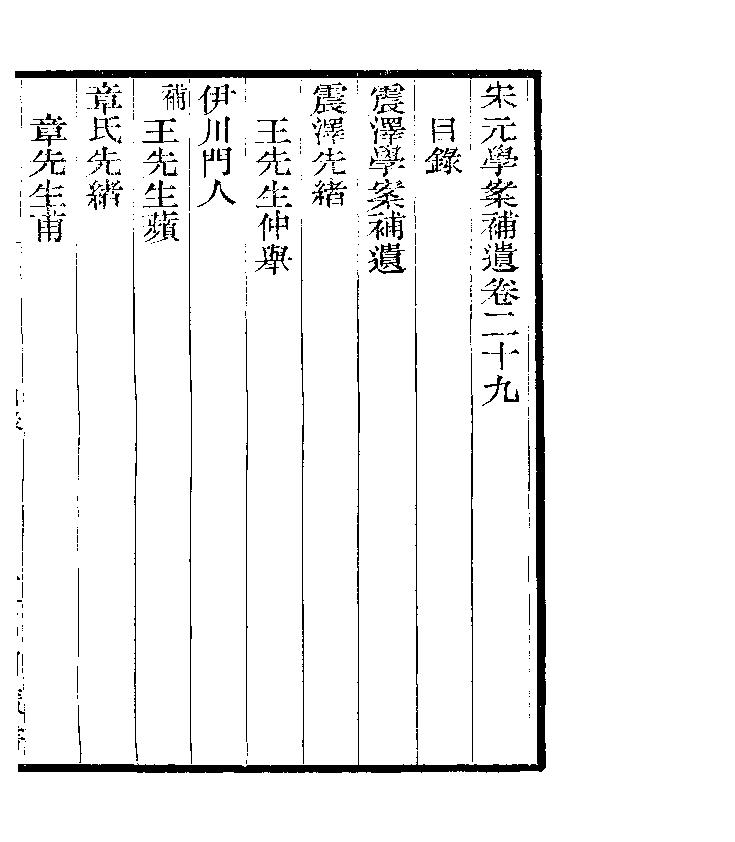 宋元學案補遺卷二十九
目錄
震澤學案補遺
震澤先緒
王先生仲舉
伊川門人
補王先生蘋
章氏先緒
章先生甫